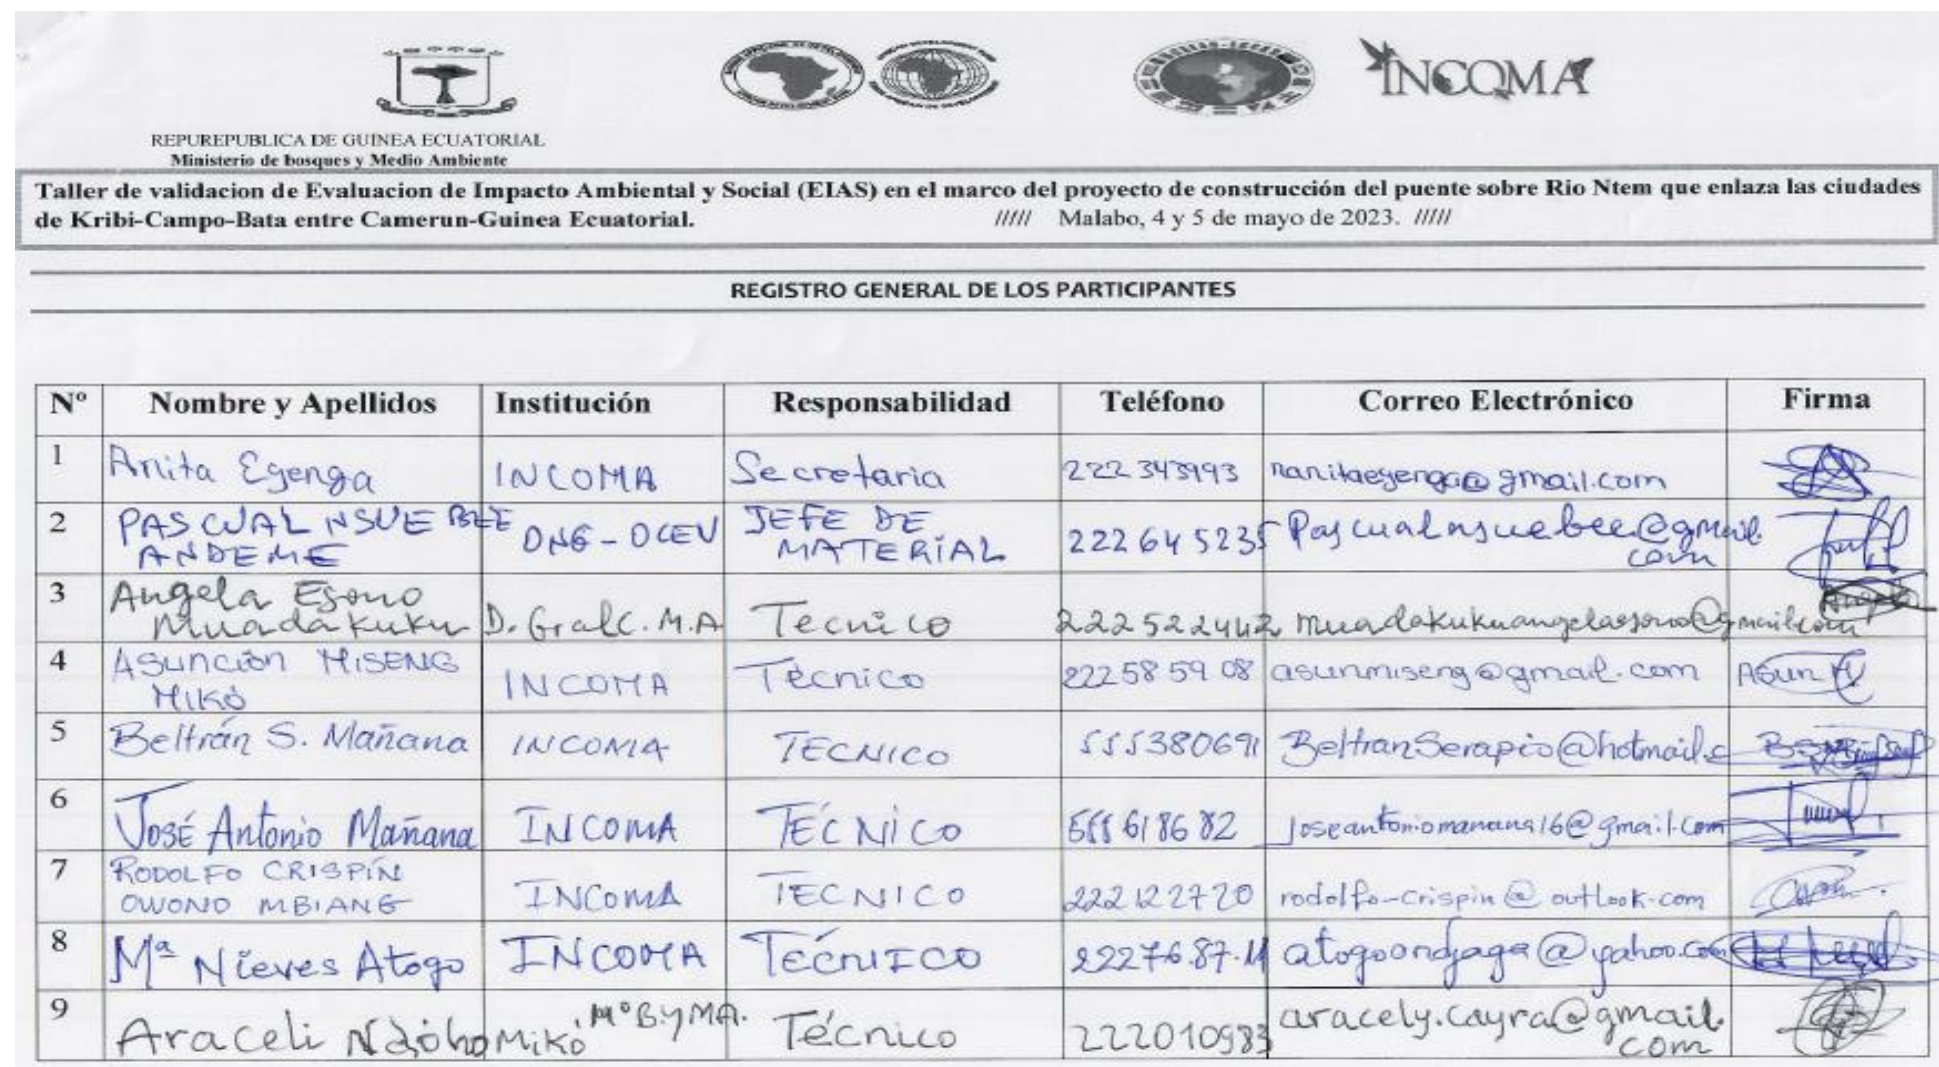 INCOMA
REPUREPUBLICA DE GUINEA ECUATORIAL
Ministerio de bosques y Medio Ambiente
Taller de validacion de Evaluacion de Impacto Ambiental y Social (EIAS) en el marco del proyecto de construcción del puente sobre Rio Ntem que enlaza las ciudades
de Kribi-Campo-Bata entre Camerun-Guinea Ecuatorial. ///// Malabo, 4 y 5 de mayo de 2023. /////
REGISTRO GENERAL DE LOS PARTICIPANTES
Nº Nombre y Apellidos Institución Responsabilidad Teléfono Correo Electrónico Firma
1 Anita Egenga INCOMA Secretaria 222 343993 nanitaegenga@gmail.com
2 PASCUAL NSUE BEE ONG-OCEV JEFE DE 222 64 5235 Pascualnsuebee@gmail.
ANDEME MATERIAL com
3 Angela Esono
Muadakuku D. Gralc. M.A Tecnico 222522442 muadakukuangelaesono@gmail.com
4 ASUNCIÓN MISENG INCOMA Técnico 222 58 59 08 asunmiseng@gmail.com Asun
MIKÓ
5 Beltrán S. Mañana INCOMA TECNICO 555380691 BeltranSerapio@hotmail.c
6 José Antonio Mañana INCOMA TÉCNICO 555 618682 Joseantoniomanana16@gmail.com
7 RODOLFO CRISPÍN
OWONO MBIANG INCOMA TECNICO 222122720 rodolfo-crispin@outlook.com
8 Mª Nieves Atogo INCOMA TÉCNICO 22276.87. atogoondjaga@yahoo.com
9 Araceli Ndóho Mikó Mº B.y MA. Técnico 222010983 aracely.cayra@gmail.
com